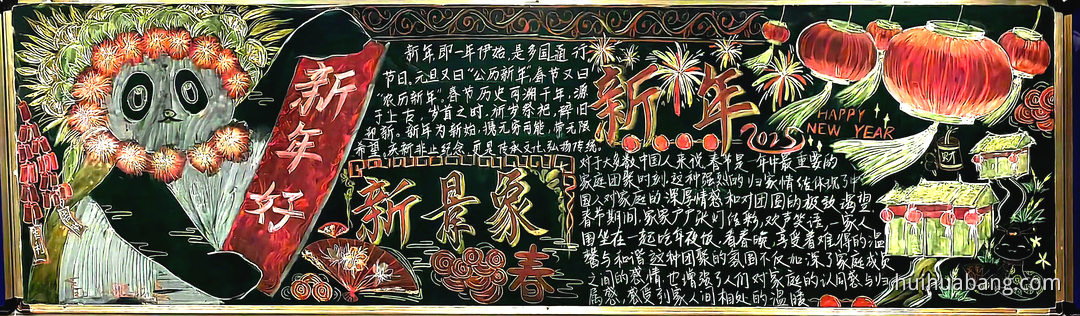 新年好
新年即一年伊始,是多国通行
节日。元旦又曰“公历新年”,春节又曰
“农历新年”。春节历史可溯千年,源
于上古,岁首之时,祈岁祭祀,辞旧
迎新。新年为新始,携无穷可能,带无限
希望。庆新非止纪念,更是传承文化,弘扬传统。
新景象
春
新年
2025
HAPPY
NEW YEAR
对于大多数中国人来说,春节是一年中最重要的
家庭团聚时刻,这种强烈的归家情结体现了中
国人对家庭的深厚情感和对团圆的极致渴望
春节期间,家家户户张灯结彩,欢声笑语,一家人
围坐在一起吃年夜饭,看春晚,享受着难得的温
馨与和谐这种团聚的氛围不仅加深了家庭成员
之间的感情,也增强了人们对家庭的认同感与归
属感,感受到家人间相处的温暖
huihuabang.com